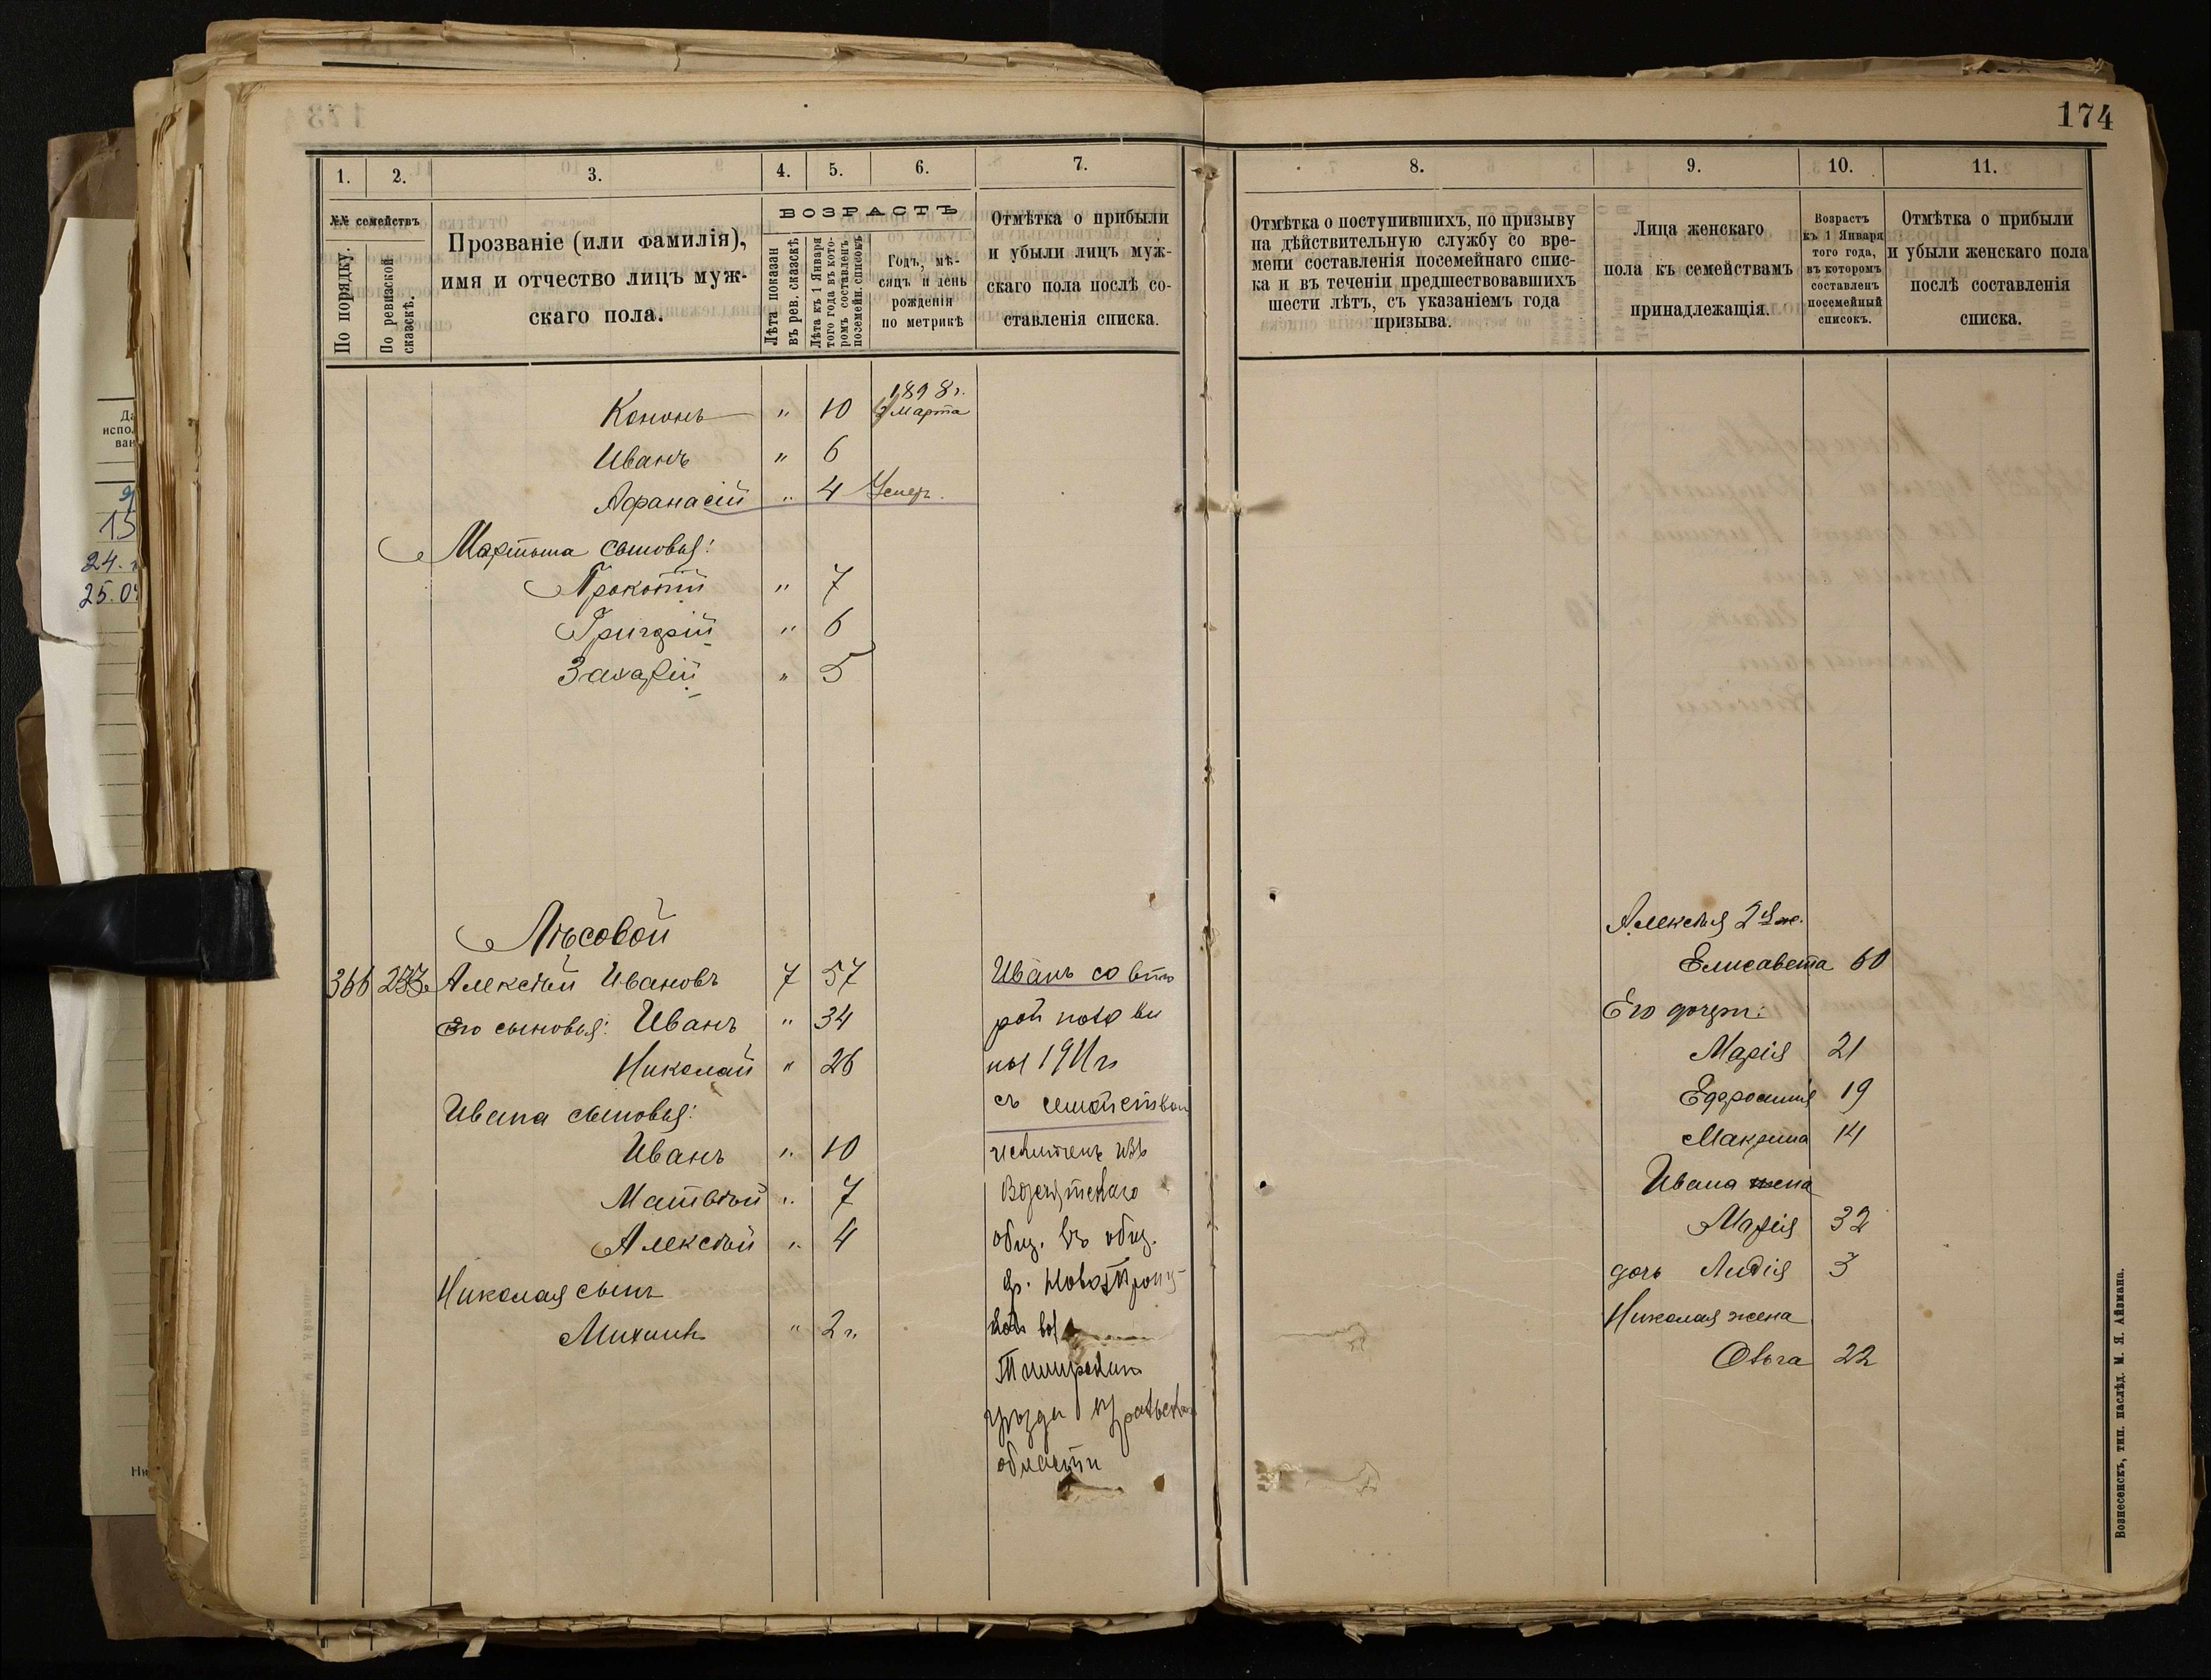 174
1. 2. 3. 4. 5. 6. 7.
№№ семействъ
По порядку.
По ревизской сказкѣ.
Прозваніе (или фамилія),
имя и отчество лицъ муж-
скаго пола.
ВОЗРАСТЪ
Лѣта показан
въ рев. сказкѣ
Лѣта къ 1 Января
того года въ кото-
ромъ составленъ
посемейн. списокъ
Годъ, мѣ-
сяцъ и день
рожденія
по метрикѣ
Отмѣтка о прибыли
и убыли лицъ муж-
скаго пола послѣ со-
ставленія списка.
1898 г.
Кононъ " 10 Марта
Иванъ " 6
Афанасій " 4 Умер.
Мартына сыновья:
Прокопій " 7
Григорій " 6
Захарій " 5
Лѣсовой
366 Алексѣй Ивановъ 7 57
Его сыновья: Иванъ " 34
Николай " 26
Ивана сыновья:
Иванъ " 10
Матвѣй " 7
Алексѣй " 4
Николая сынъ
Михаилъ " 2
Иванъ со вто
рой полови
ны 1911 г
съ семействомъ
изъ
общ. въ общ.
д.
уѣзда
области
8. 9. 10. 11.
Отмѣтка о поступившихъ, по призыву
на дѣйствительную службу со вре-
мени составленія посемейнаго спис-
ка и въ теченіи предшествовавшихъ
шести лѣтъ, съ указаніемъ года
призыва.
Лица женскаго
пола къ семействамъ
принадлежащія.
Возрастъ
къ 1 Января
того года,
въ которомъ
составленъ
посемейный
списокъ.
Отмѣтка о прибыли
и убыли женскаго пола
послѣ составленія
списка.
Алексѣя 2я ж.
Елисавета 60
Его дочери:
Марія 21
Ефросинія 19
Макрина 14
Ивана жена
Марія 32
дочь Лидія 3
Николая жена
Ольга 22
Вознесенскъ, тип. наслѣд. М. Я. Айзмана.